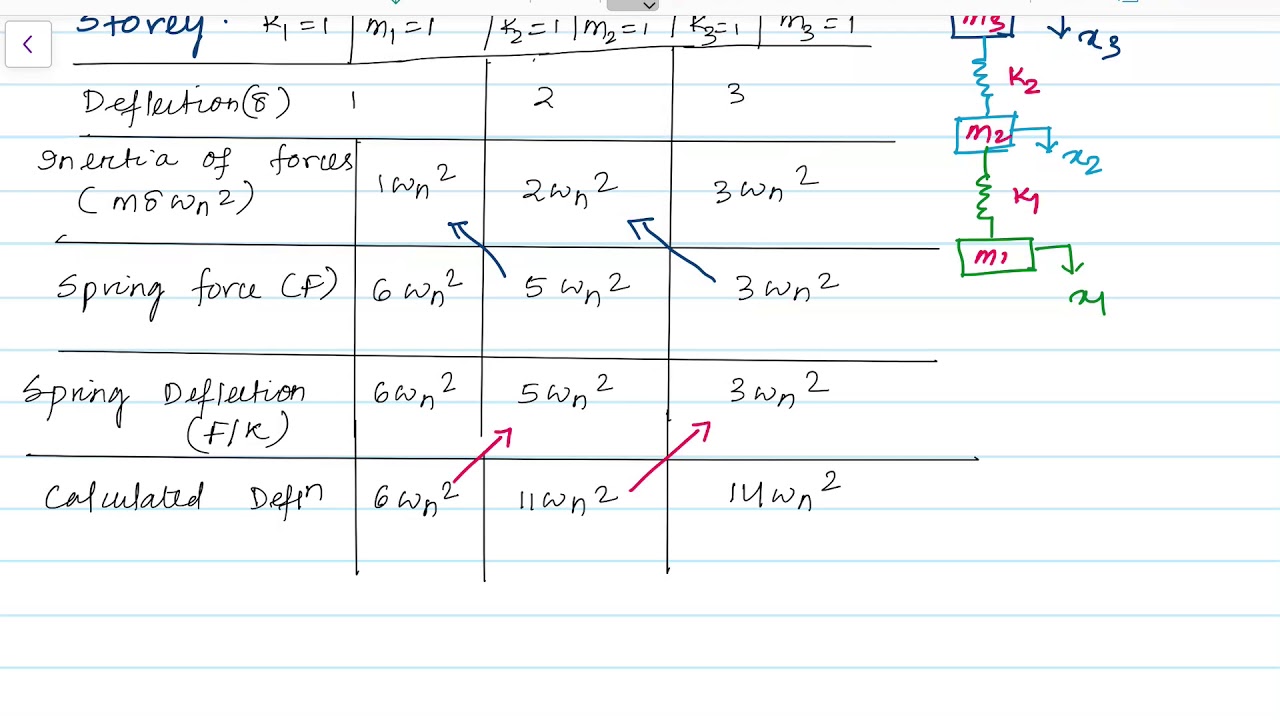 Storey: K1=1 | m1=1 | K2=1 | m2=1 | K3=1 | m3=1
Deflection(δ) 1 2 3
Inertia of forces
(mδωn2) 1ωn² 2ωn² 3ωn²
Spring force (F) 6ωn² 5ωn² 3ωn²
Spring Deflection
(F/K) 6ωn² 5ωn² 3ωn²
Calculated Defln 6ωn² 11ωn² 14ωn²
m3
x3
K2
m2
x2
K1
m1
x1